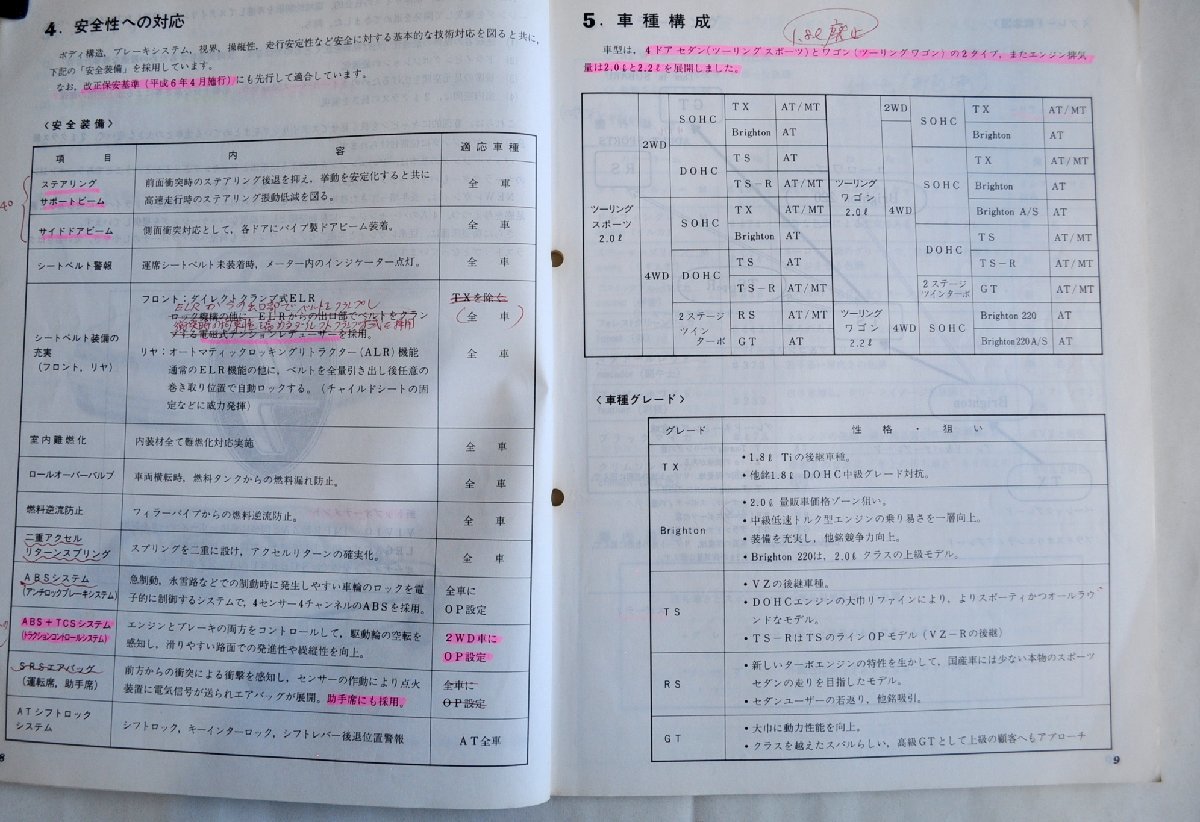 4. 安全性への対応
ボディ構造, ブレーキシステム, 視界, 操縦性, 走行安定性など安全に対する基本的な技術対応を図ると共に,
下記の「安全装備」を採用しています。
なお, 改正保安基準 (平成6年4月施行) にも先行して適合しています。
〈安全装備〉
項 目 内 容 適応車種
ステアリング
サポートビーム
前面衝突時のステアリング後退を抑え, 挙動を安定化すると共に
高速走行時のステアリング振動低減を図る。
全 車
40
サイドドアビーム 側面衝突対応として, 各ドアにパイプ製ドアビーム装着。 全 車
シートベルト警報 運席シートベルト未装着時, メーター内のインジケーター点灯。 全 車
シートベルト装備の
充実
(フロント, リヤ)
フロント:ダイレクトクランプ式ELR
ロック機構の他に, ELRからの出口部でベルトをクラン
プする電磁式テンションレデューサーを採用。
TXを除く
(全 車)
リヤ:オートマティックロッキングリトラクター (ALR) 機能
通常のELR機能の他に, ベルトを全量引き出し後任意の
巻き取り位置で自動ロックする。(チャイルドシートの固
定などに威力発揮)
全 車
室内難燃化 内装材全て難燃化対応実施 全 車
ロールオーバーバルブ 車両横転時, 燃料タンクからの燃料漏れ防止。 全 車
燃料逆流防止 フィラーパイプからの燃料逆流防止。 全 車
二重アクセル
リターンスプリング
スプリングを二重に設け, アクセルリターンの確実化。 全 車
ABSシステム
(アンチロックブレーキシステム)
急制動, 氷雪路などでの制動時に発生しやすい車輪のロックを電
子的に制御するシステムで, 4センサー4チャンネルのABSを採用。
全車に
OP設定
ABS+TCSシステム
(トラクションコントロールシステム)
エンジンとブレーキの両方をコントロールして, 駆動輪の空転を
感知し, 滑りやすい路面での発進性や操縦性を向上。
2WD車に
OP設定
SRSエアバッグ
(運転席, 助手席)
前方からの衝突による衝撃を感知し, センサーの作動により点火
装置に電気信号が送られエアバッグが展開。助手席にも採用。
全車に
OP設定
ATシフトロック
システム
シフトロック, キーインターロック, シフトレバー後退位置警報 AT全車
8
5. 車種構成
1.8ℓ 廃止
車型は, 4ドアセダン(ツーリングスポーツ)とワゴン(ツーリングワゴン)の2タイプ, またエンジン排気
量は2.0ℓと2.2ℓを展開しました。
ツーリング
スポーツ
2.0ℓ
2WD
SOHC
TX AT/MT
Brighton AT
DOHC
TS AT
TS-R AT/MT
4WD
SOHC
TX AT/MT
Brighton AT
DOHC
TS AT
TS-R AT/MT
2ステージ
ツイン
ターボ
RS AT/MT
GT AT
ツーリング
ワゴン
2.0ℓ
2WD
SOHC
TX AT/MT
Brighton AT
4WD
SOHC
TX AT/MT
Brighton AT
Brighton A/S AT
DOHC
TS AT/MT
TS-R AT/MT
2ステージ
ツインターボ
GT AT/MT
ツーリング
ワゴン
2.2ℓ
4WD
SOHC
Brighton 220 AT
Brighton220A/S AT
〈車種グレード〉
グレード 性 格 ・ 狙 い
TX
・1.8ℓ Tiの後継車種。
・他銘1.8ℓ DOHC中級グレード対抗。
Brighton
・2.0ℓ 量販車価格ゾーン狙い。
・中級低速トルク型エンジンの乗り易さを一層向上。
・装備を充実し, 他銘競争力向上。
・Brighton 220は, 2.0ℓ クラスの上級モデル。
TS
・VZの後継車種。
・DOHCエンジンの大巾リファインにより, よりスポーティかつオールラウ
ンドなモデル。
・TS-RはTSのラインOPモデル (VZ-Rの後継)
RS
・新しいターボエンジンの特性を生かして, 国産車には少ない本物のスポーツ
セダンの走りを目指したモデル。
・セダンユーザーの若返り, 他銘吸引。
GT
・大巾に動力性能を向上。
・クラスを越えたスバルらしい, 高級GTとして上級の顧客へもアプローチ
9